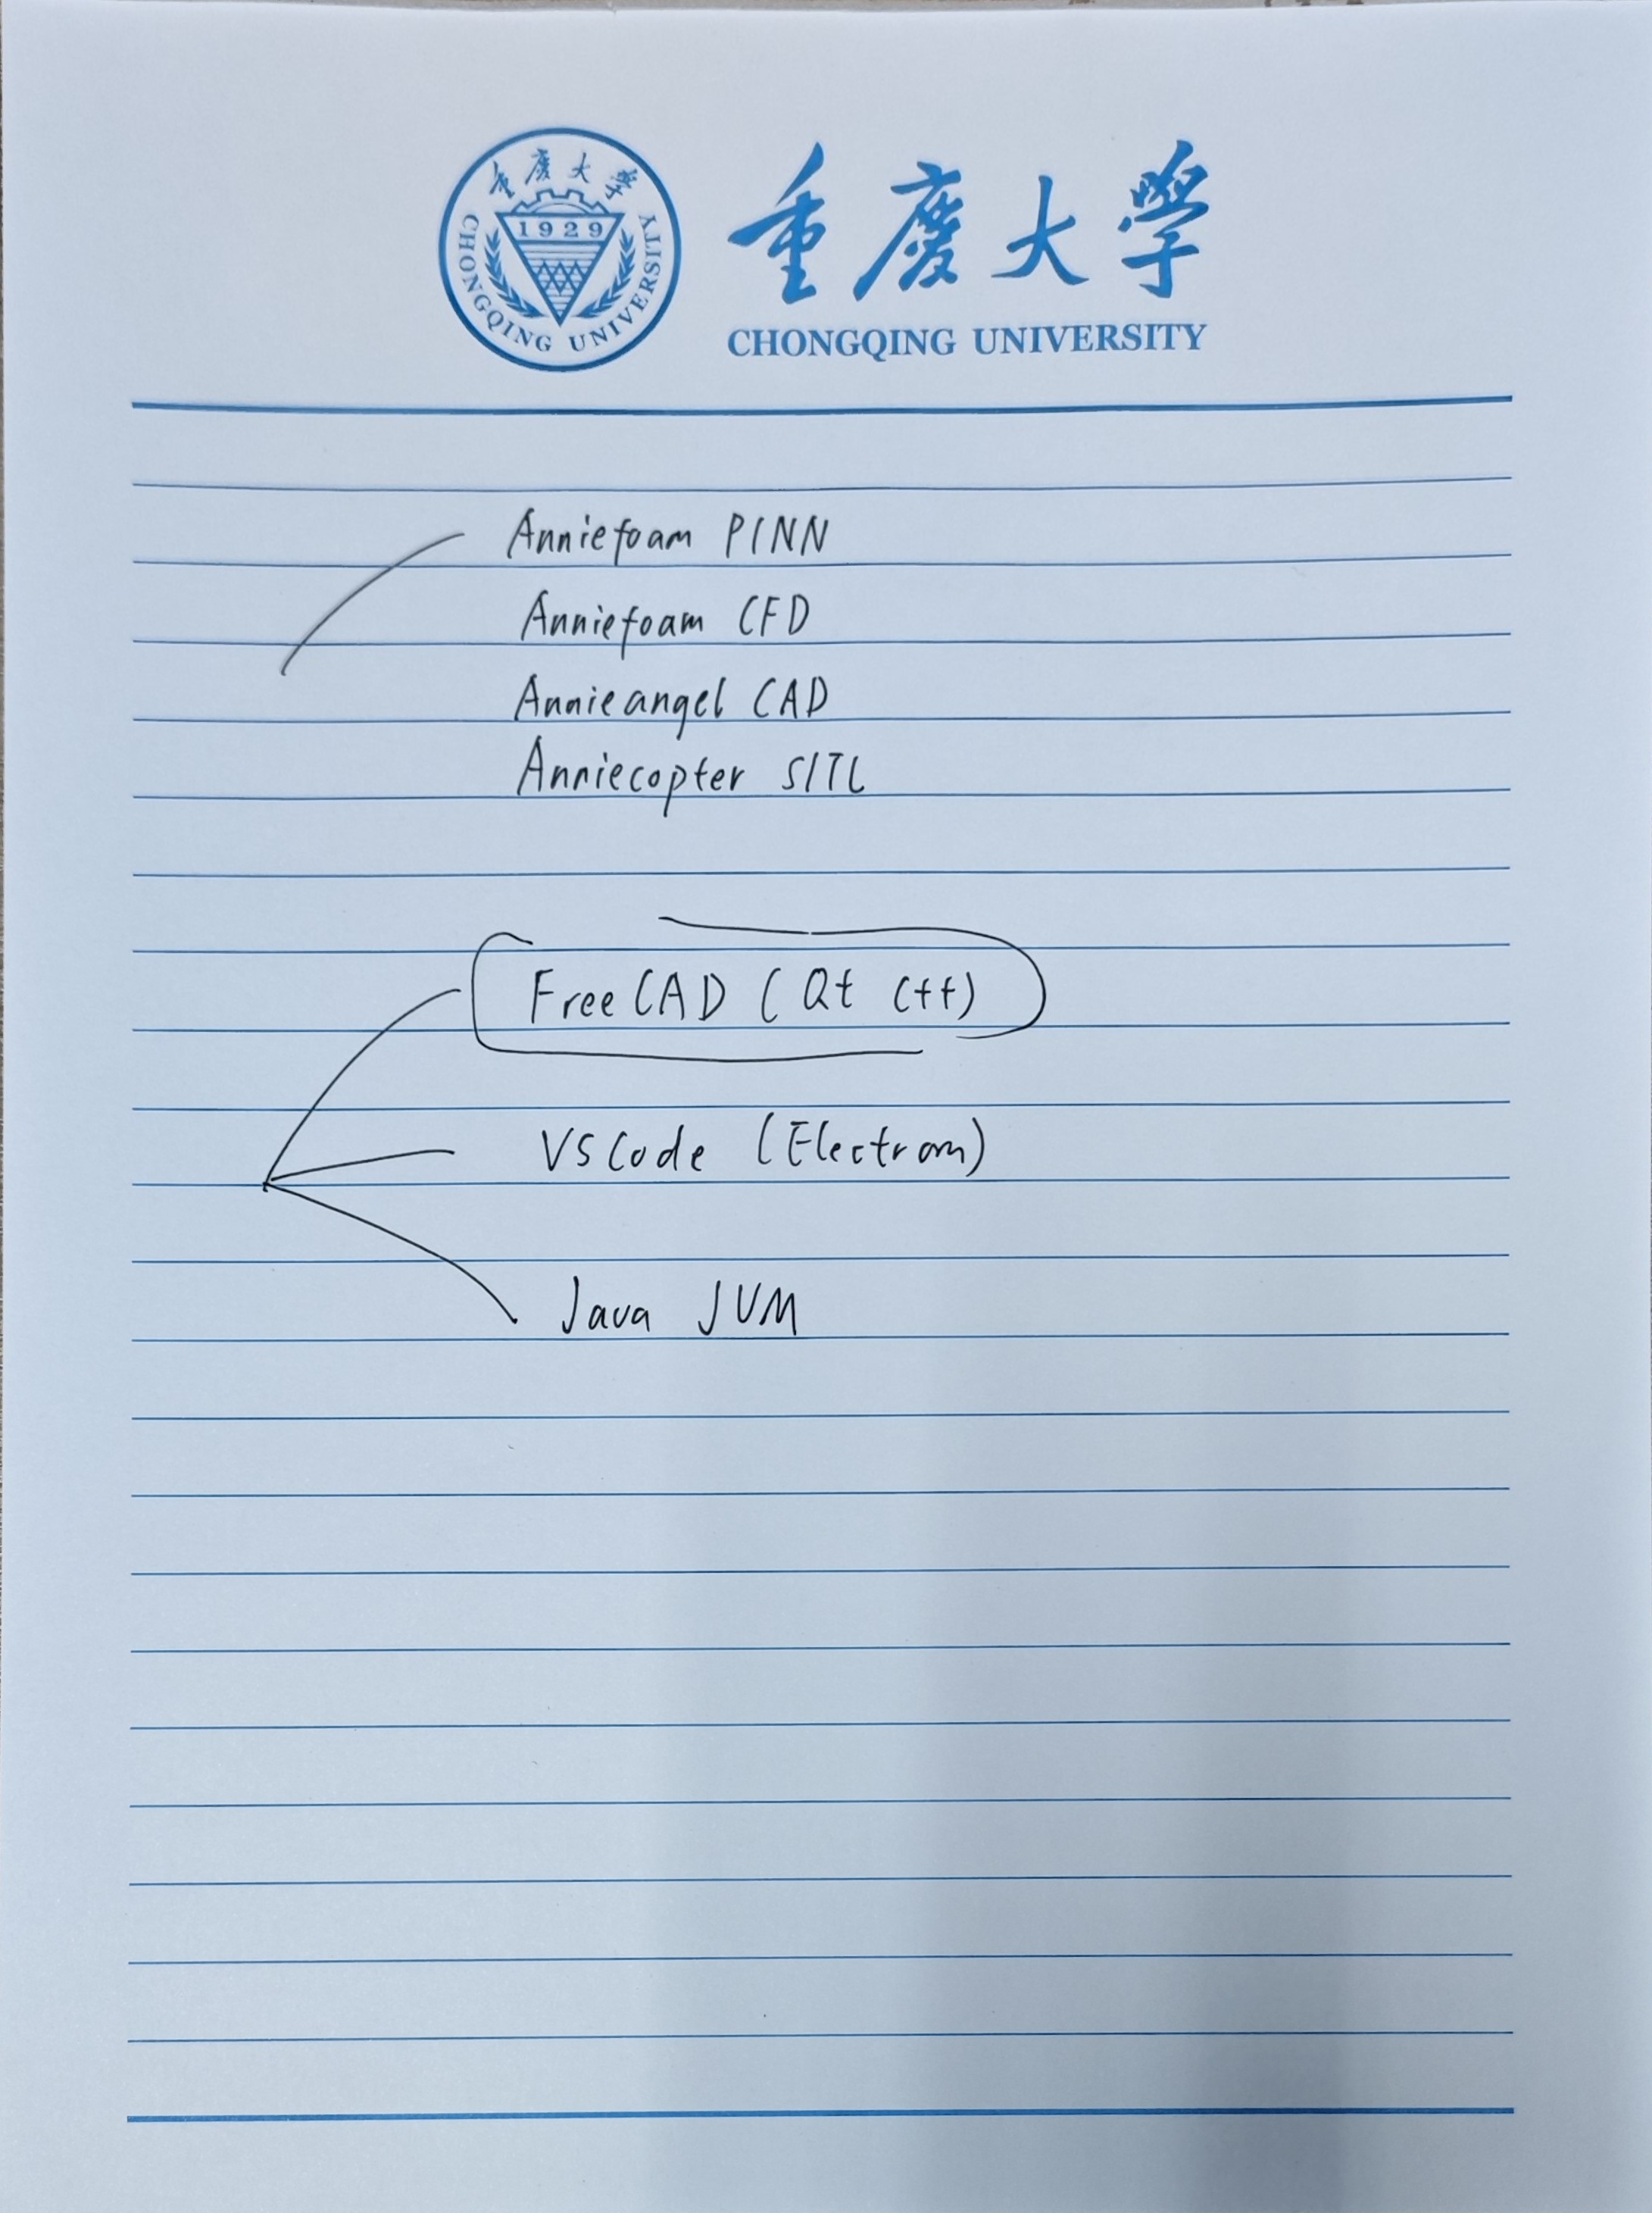 重慶大學
1929
CHONGQING UNIVERSITY
重慶大學
CHONGQING UNIVERSITY
Anniefoam PINN
Anniefoam CFD
Annieangel CAD
Anniecopter SITL
FreeCAD (Qt C++)
VSCode (Electron)
Java JVM